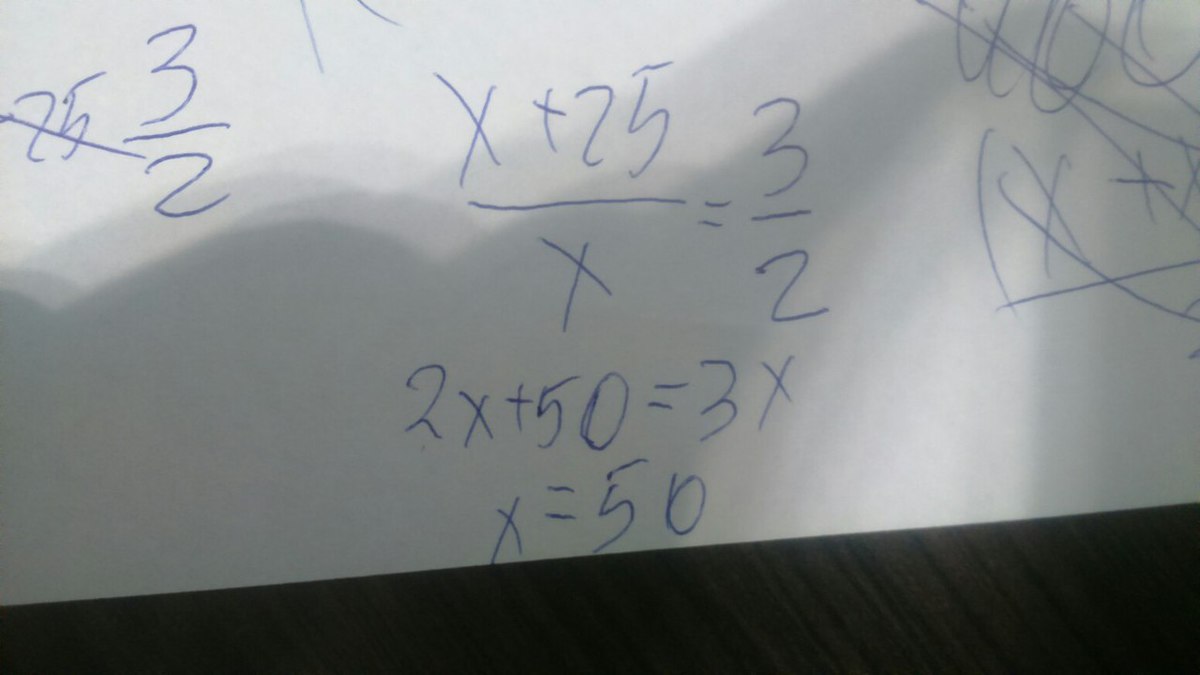 25 3/2
(x+25)/x = 3/2
2x+50=3x
x=50